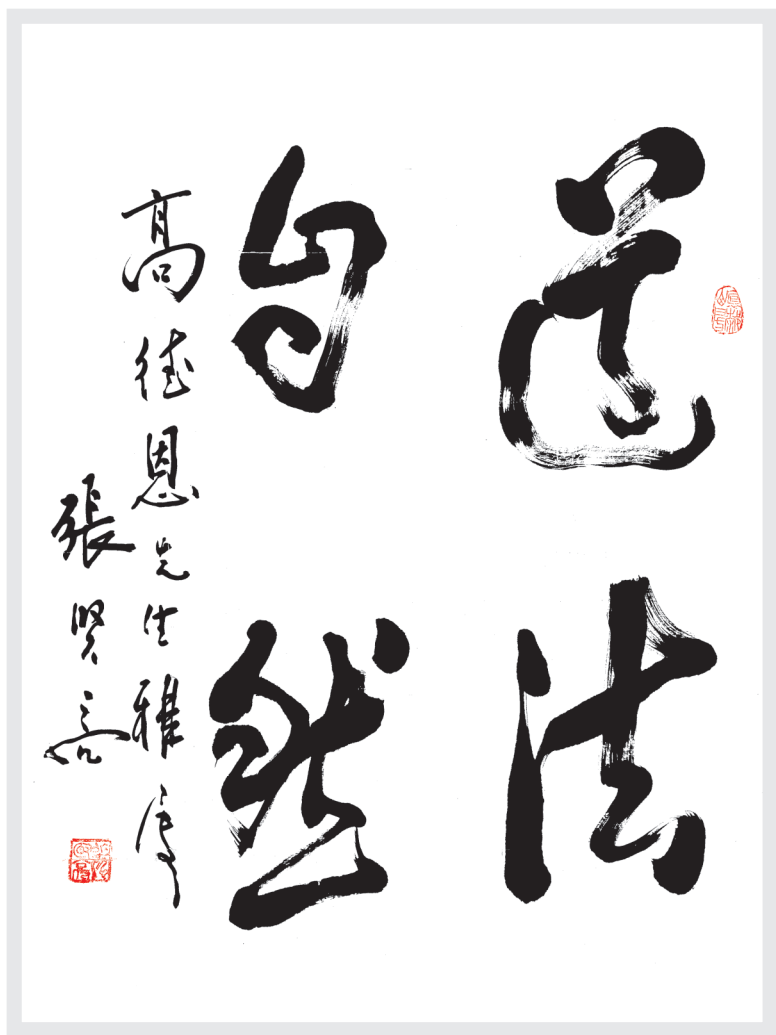 道法
自然
高德恩先生雅寄
張賢亮